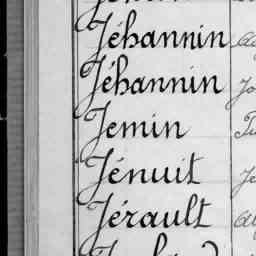 Jéhannin
Jéhannin
Jemin
Jénuit
Jérault